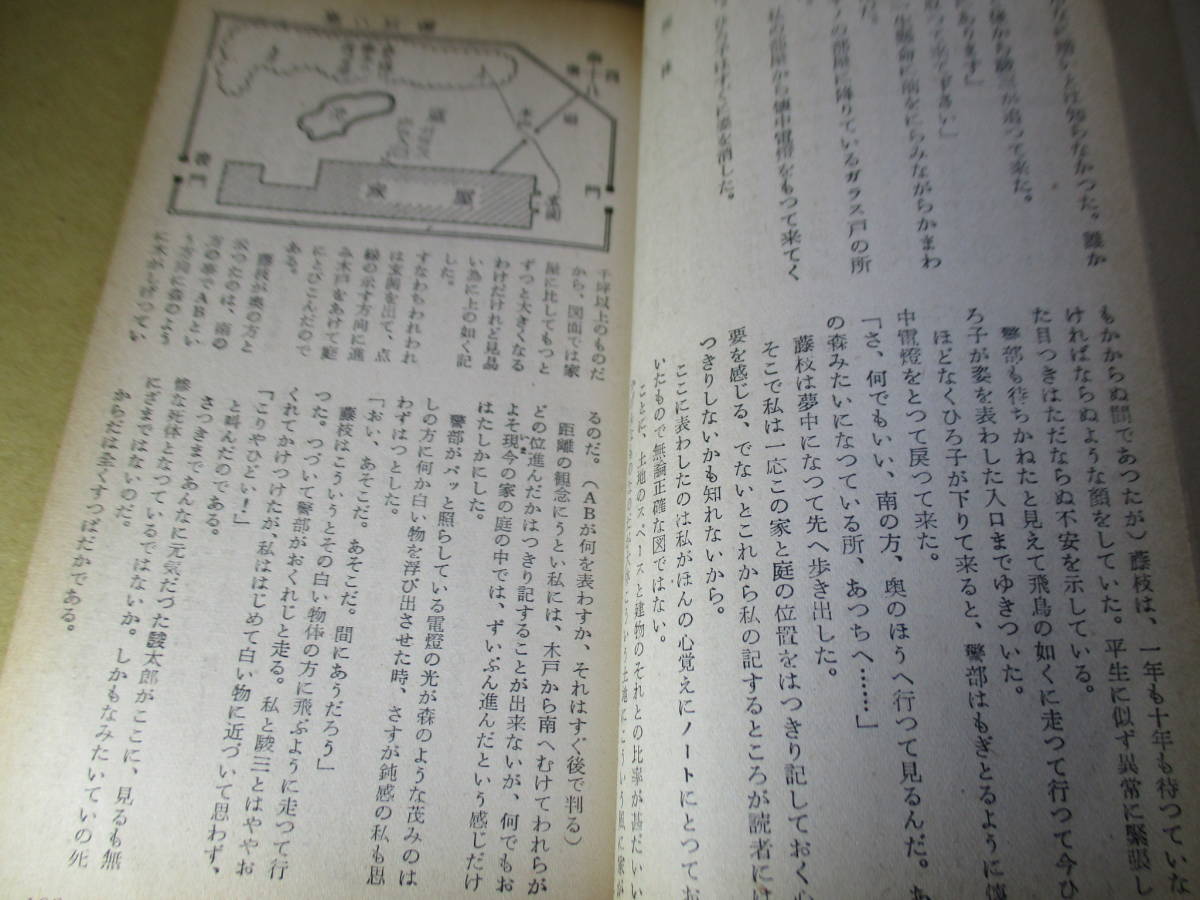 とは知らなかつた。誰か
後から駿三が追つて来た。
取つて来て下さい」
にあります」
一生懸命に前をにらみながらかまわ
だ。
の部屋に降りているガラス戸の所
私の部屋から懐中電燈をもつて来てく
ひろ子はすぐに姿を消した。
もかからぬ間であつたが）藤枝は、一年も十年も待つていな
ければならぬような顔をしていた。平生に似ず異常に緊張し
た目つきはただならぬ不安を示している。
警部も待ちかねたと見えて飛鳥の如くに走つて行つて今ひ
ろ子が姿を表わした入口までゆきついた。
ほどなくひろ子が下りて来ると、警部はもぎとるように懐
中電燈をとつて戻つて来た。
「さ、何でもいい、南の方、奥のほうへ行つて見るんだ。あ
の森みたいになつている所、あつちへ……」
藤枝は夢中になつて先へ歩き出した。
そこで私は一応この家と庭の位置をはつきり記しておく必
要を感じる、でないとこれから私の記するところが読者には
つきりしないかも知れないから。
ここに表わしたのは私がほんの心覚えにノートにとつてお
いたもので無論正確な図ではない。
ことに、土地のスペースと建物のそれとの比率が甚だいい
門
裏門
家屋
玄関
木戸
池
千坪以上のものだ
から、図面では家
屋に比してもつと
ずつと大きくなる
わけだけれど見易
い為に上の如く記
した。
すなわちわれわれ
は玄関を出て、点
線の示す方向に進
み木戸をあけて庭
によびこんだので
ある。
藤枝が奥の方と
云つたのは、南の
方の事でABとい
う方向に森のよう
に木がしげつてい
るのだ。（ABが何を表わすか、それはすぐ後で判る）
距離の観念にうとい私には、木戸から南へむけてわれらが
どの位進んだかはつきり記することが出来ないが、何でもお
よそ現今の家の庭の中では、ずいぶん進んだという感じだけ
はたしかにした。
警部がパッと照らしている電燈の光が森のような茂みのは
しの方に何か白い物を浮び出させた時、さすが鈍感の私も思
わずはつとした。
「おい、あそこだ。あそこだ。間にあうだろう」
藤枝はこういうとその白い物体の方に飛ぶように走つて行
つた。つづいて警部がおくれじと走る。私と駿三とはややお
くれてかけつけたが、私ははじめて白い物に近づいて思わず、
「こりやひどい！」
と叫んだのである。
さつきまであんなに元気だつた駿太郎がここに、見るも無
惨な死体となつているではないか。しかもなみたいていの死
にざまではないのだ。
からだは全くすつぱだかである。